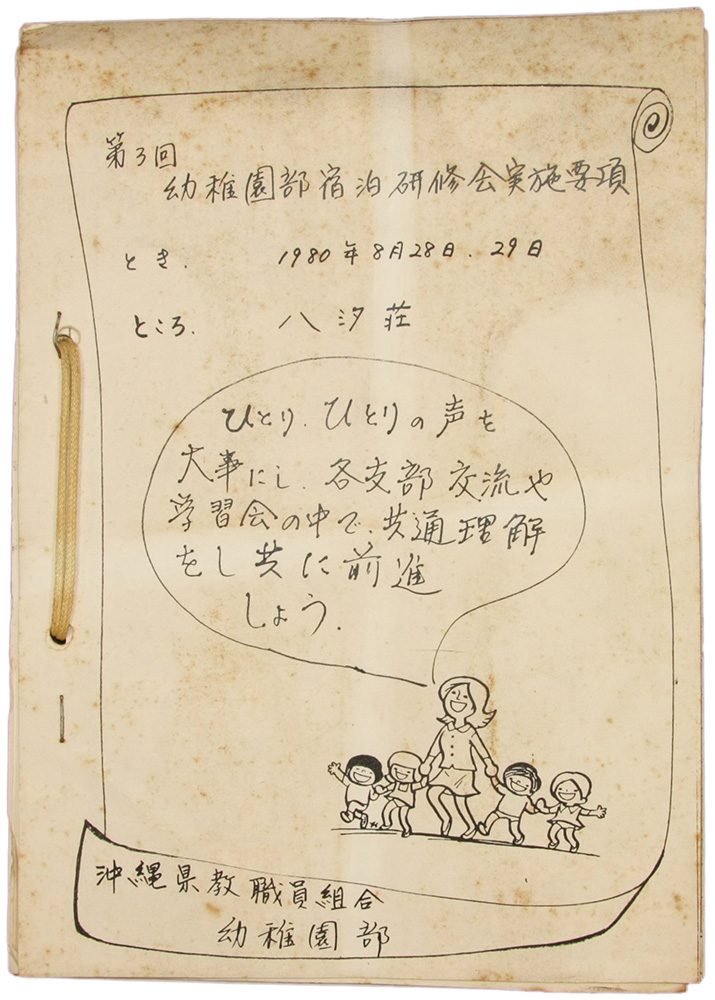 第3回
幼稚園部宿泊研修会実施要項
とき. 1980年8月28日.29日
ところ. 八汐荘
ひとり.ひとりの声を
大事にし.各支部交流や
学習会の中で.共通理解
をし共に前進
しょう.
沖縄県教職員組合
幼稚園部